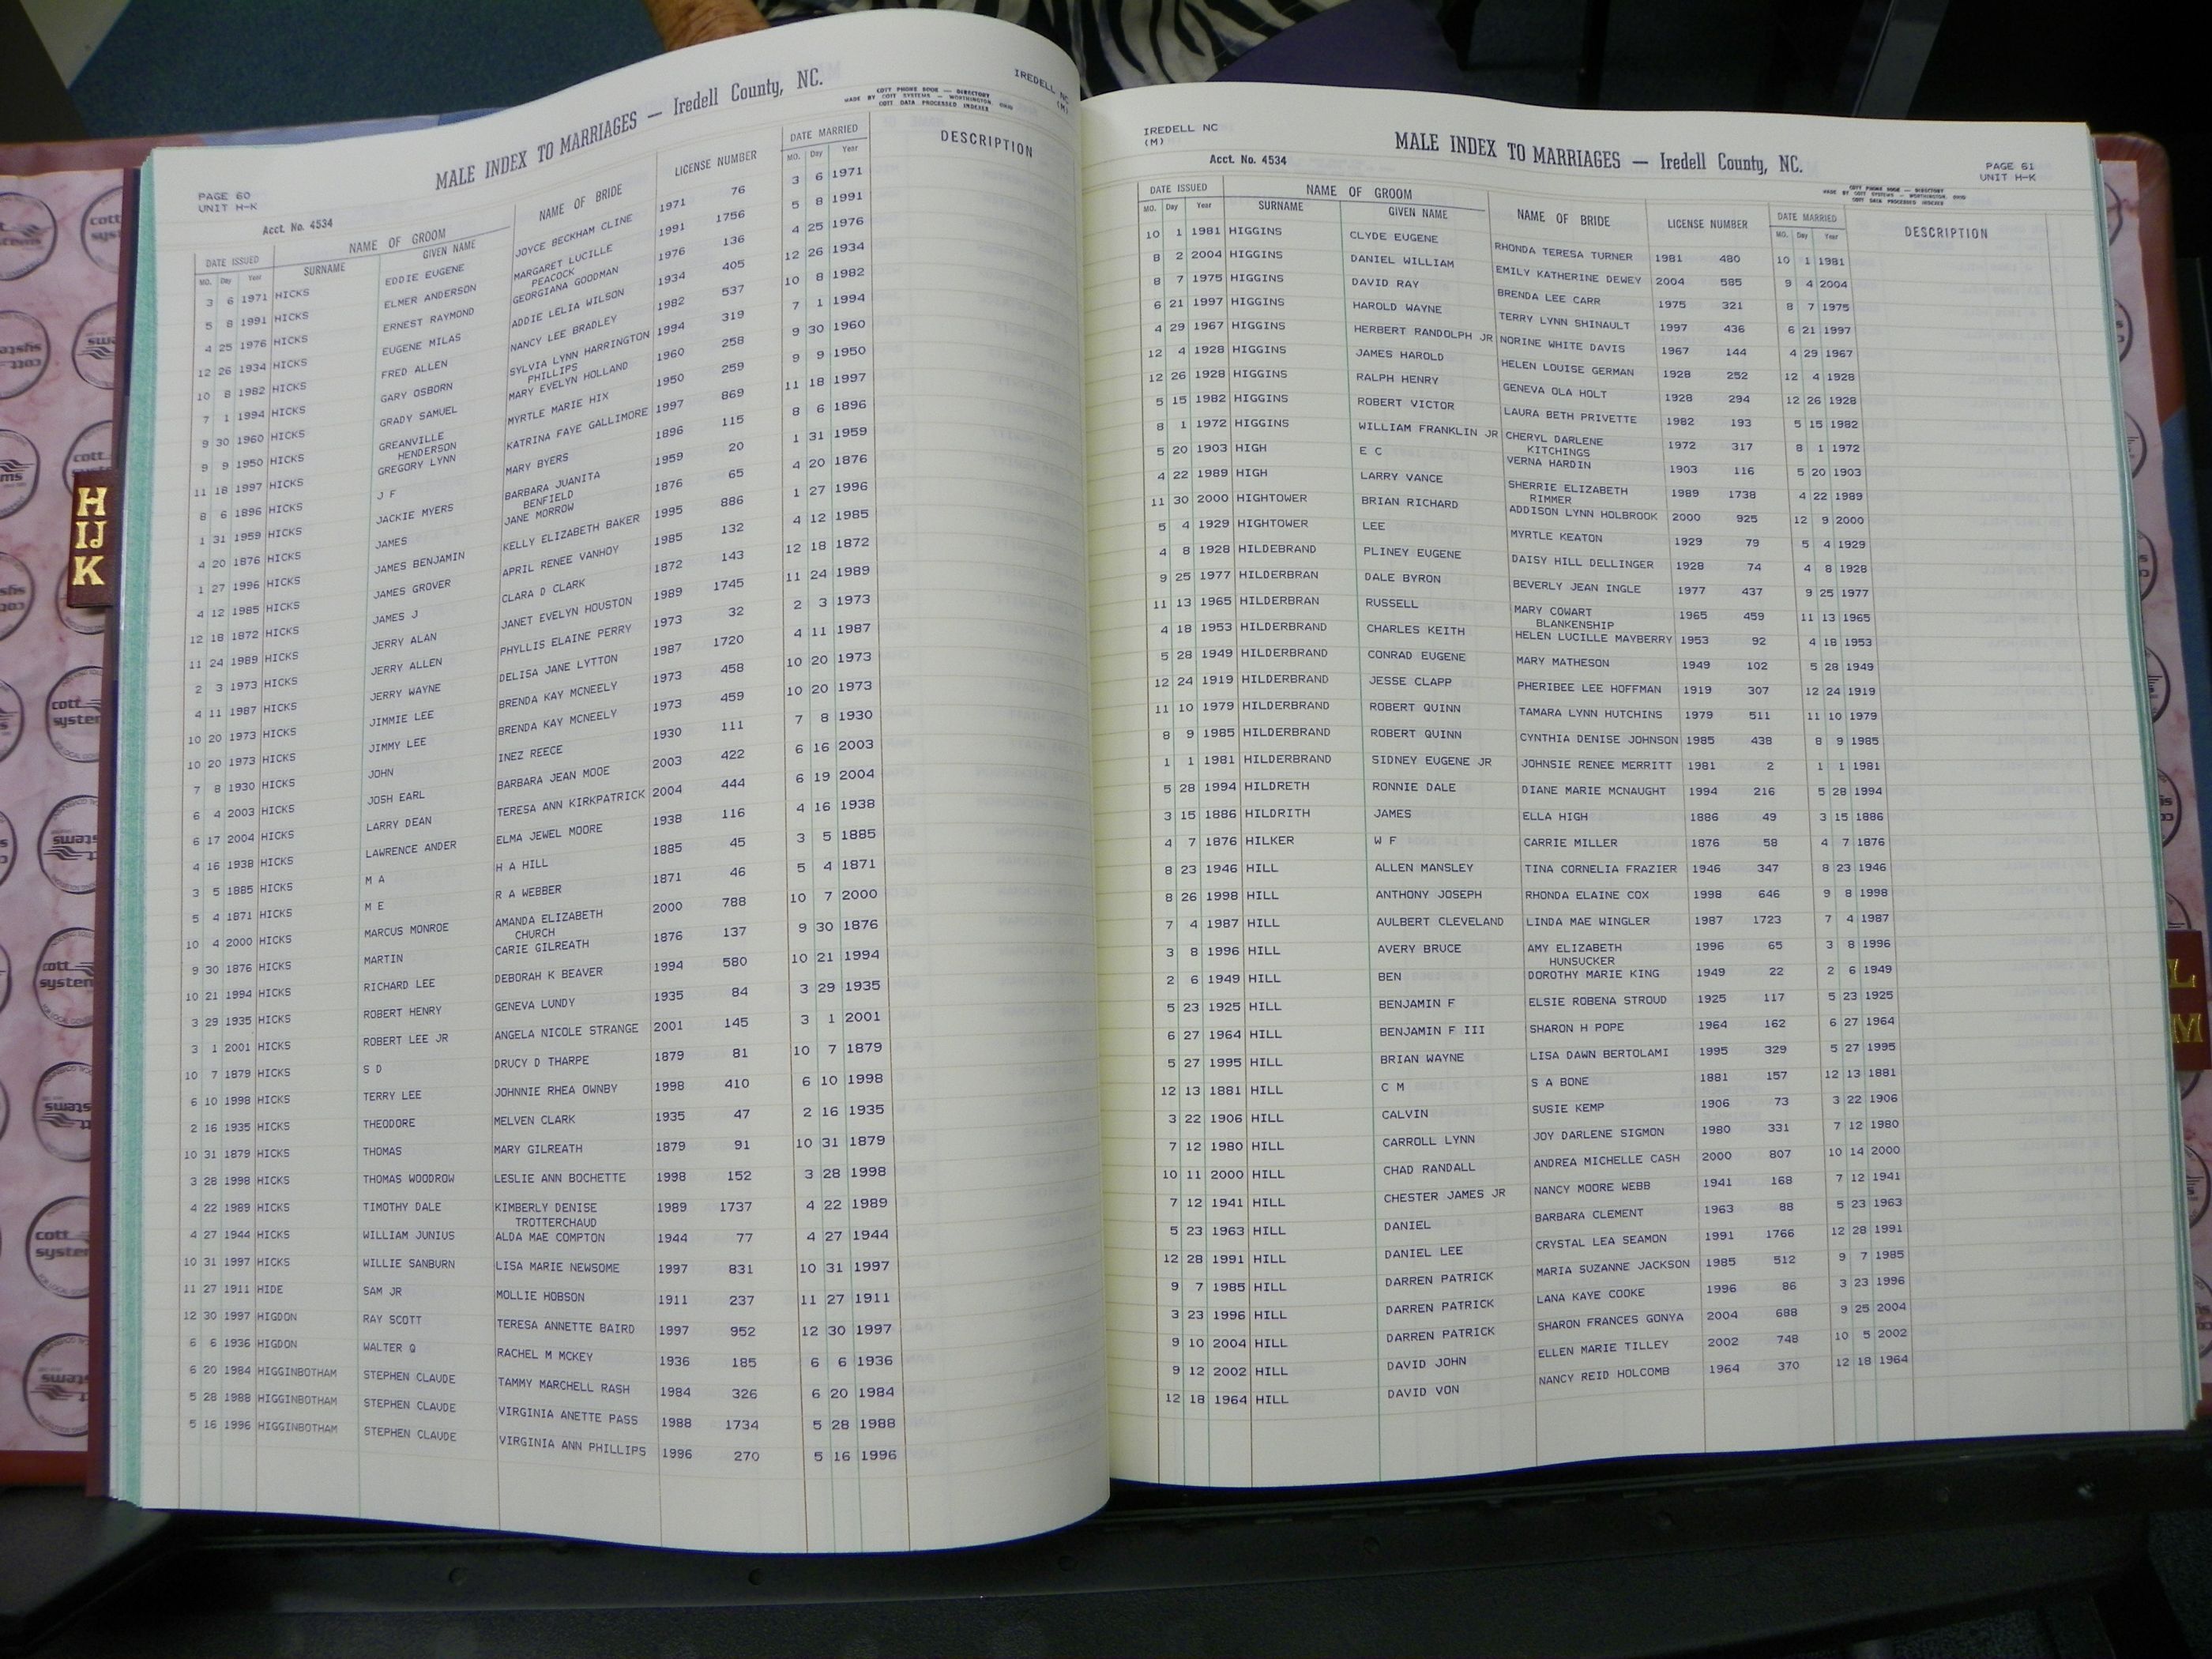 PAGE 60
UNIT H-K
Acct. No. 4534
MALE INDEX TO MARRIAGES — Iredell County, NC.
COTT PHONE BOOK — DIRECTORY
MADE BY COTT SYSTEMS — WORTHINGTON, OHIO
COTT DATA PROCESSED INDEXES
IREDELL NC
(M)
DATE ISSUED NAME OF GROOM NAME OF BRIDE LICENSE NUMBER DATE MARRIED DESCRIPTION
MO. Day Year SURNAME GIVEN NAME MO. Day Year
3 6 1971 HICKS EDDIE EUGENE JOYCE BECKHAM CLINE 1971 76 3 6 1971
5 8 1991 HICKS ELMER ANDERSON MARGARET LUCILLE 1991 1756 5 8 1991
PEACOCK
4 25 1976 HICKS ERNEST RAYMOND GEORGIANA GOODMAN 1976 136 4 25 1976
12 26 1934 HICKS EUGENE MILAS ADDIE LELIA WILSON 1934 405 12 26 1934
10 8 1982 HICKS FRED ALLEN NANCY LEE BRADLEY 1982 537 10 8 1982
7 1 1994 HICKS GARY OSBORN SYLVIA LYNN HARRINGTON 1994 319 7 1 1994
PHILLIPS
9 30 1960 HICKS GRADY SAMUEL MARY EVELYN HOLLAND 1960 258 9 30 1960
9 9 1950 HICKS GREANVILLE MYRTLE MARIE HIX 1950 259 9 9 1950
HENDERSON
11 18 1997 HICKS GREGORY LYNN KATRINA FAYE GALLIMORE 1997 869 11 18 1997
8 6 1896 HICKS J F MARY BYERS 1896 115 8 6 1896
1 31 1959 HICKS JACKIE MYERS BARBARA JUANITA 1959 20 1 31 1959
BENFIELD
4 20 1876 HICKS JAMES JANE MORROW 1876 65 4 20 1876
1 27 1996 HICKS JAMES BENJAMIN KELLY ELIZABETH BAKER 1995 886 1 27 1996
4 12 1985 HICKS JAMES GROVER APRIL RENEE VANHOY 1985 132 4 12 1985
12 18 1872 HICKS JAMES J CLARA D CLARK 1872 143 12 18 1872
11 24 1989 HICKS JERRY ALAN JANET EVELYN HOUSTON 1989 1745 11 24 1989
2 3 1973 HICKS JERRY ALLEN PHYLLIS ELAINE PERRY 1973 32 2 3 1973
4 11 1987 HICKS JERRY WAYNE DELISA JANE LYTTON 1987 1720 4 11 1987
10 20 1973 HICKS JIMMIE LEE BRENDA KAY MCNEELY 1973 458 10 20 1973
10 20 1973 HICKS JIMMY LEE BRENDA KAY MCNEELY 1973 459 10 20 1973
7 8 1930 HICKS JOHN INEZ REECE 1930 111 7 8 1930
6 4 2003 HICKS JOSH EARL BARBARA JEAN MOOE 2003 422 6 16 2003
6 17 2004 HICKS LARRY DEAN TERESA ANN KIRKPATRICK 2004 444 6 19 2004
4 16 1938 HICKS LAWRENCE ANDER ELMA JEWEL MOORE 1938 116 4 16 1938
3 5 1885 HICKS M A H A HILL 1885 45 3 5 1885
5 4 1871 HICKS M E R A WEBBER 1871 46 5 4 1871
10 4 2000 HICKS MARCUS MONROE AMANDA ELIZABETH 2000 788 10 7 2000
CHURCH
9 30 1876 HICKS MARTIN CARIE GILREATH 1876 137 9 30 1876
10 21 1994 HICKS RICHARD LEE DEBORAH K BEAVER 1994 580 10 21 1994
3 29 1935 HICKS ROBERT HENRY GENEVA LUNDY 1935 84 3 29 1935
3 1 2001 HICKS ROBERT LEE JR ANGELA NICOLE STRANGE 2001 145 3 1 2001
10 7 1879 HICKS S D DRUCY D THARPE 1879 81 10 7 1879
6 10 1998 HICKS TERRY LEE JOHNNIE RHEA OWNBY 1998 410 6 10 1998
2 16 1935 HICKS THEODORE MELVEN CLARK 1935 47 2 16 1935
10 31 1879 HICKS THOMAS MARY GILREATH 1879 91 10 31 1879
3 28 1998 HICKS THOMAS WOODROW LESLIE ANN BOCHETTE 1998 152 3 28 1998
4 22 1989 HICKS TIMOTHY DALE KIMBERLY DENISE 1989 1737 4 22 1989
TROTTERCHAUD
4 27 1944 HICKS WILLIAM JUNIUS ALDA MAE COMPTON 1944 77 4 27 1944
10 31 1997 HICKS WILLIE SANBURN LISA MARIE NEWSOME 1997 831 10 31 1997
11 27 1911 HIDE SAM JR MOLLIE HOBSON 1911 237 11 27 1911
12 30 1997 HIGDON RAY SCOTT TERESA ANNETTE BAIRD 1997 952 12 30 1997
6 6 1936 HIGDON WALTER Q RACHEL M MCKEY 1936 185 6 6 1936
6 20 1984 HIGGINBOTHAM STEPHEN CLAUDE TAMMY MARCHELL RASH 1984 326 6 20 1984
5 28 1988 HIGGINBOTHAM STEPHEN CLAUDE VIRGINIA ANETTE PASS 1988 1734 5 28 1988
5 16 1996 HIGGINBOTHAM STEPHEN CLAUDE VIRGINIA ANN PHILLIPS 1996 270 5 16 1996
IREDELL NC
(M)
Acct. No. 4534
MALE INDEX TO MARRIAGES — Iredell County, NC.
PAGE 61
UNIT H-K
COTT PHONE BOOK — DIRECTORY
MADE BY COTT SYSTEMS — WORTHINGTON, OHIO
COTT DATA PROCESSED INDEXES
DATE ISSUED NAME OF GROOM NAME OF BRIDE LICENSE NUMBER DATE MARRIED DESCRIPTION
MO. Day Year SURNAME GIVEN NAME MO. Day Year
10 1 1981 HIGGINS CLYDE EUGENE RHONDA TERESA TURNER 1981 480 10 1 1981
8 2 2004 HIGGINS DANIEL WILLIAM EMILY KATHERINE DEWEY 2004 585 9 4 2004
8 7 1975 HIGGINS DAVID RAY BRENDA LEE CARR 1975 321 8 7 1975
6 21 1997 HIGGINS HAROLD WAYNE TERRY LYNN SHINAULT 1997 436 6 21 1997
4 29 1967 HIGGINS HERBERT RANDOLPH JR NORINE WHITE DAVIS 1967 144 4 29 1967
12 4 1928 HIGGINS JAMES HAROLD HELEN LOUISE GERMAN 1928 252 12 4 1928
12 26 1928 HIGGINS RALPH HENRY GENEVA OLA HOLT 1928 294 12 26 1928
5 15 1982 HIGGINS ROBERT VICTOR LAURA BETH PRIVETTE 1982 193 5 15 1982
8 1 1972 HIGGINS WILLIAM FRANKLIN JR CHERYL DARLENE 1972 317 8 1 1972
KITCHINGS
5 20 1903 HIGH E C VERNA HARDIN 1903 116 5 20 1903
4 22 1989 HIGH LARRY VANCE SHERRIE ELIZABETH 1989 1738 4 22 1989
RIMMER
11 30 2000 HIGHTOWER BRIAN RICHARD ADDISON LYNN HOLBROOK 2000 925 12 9 2000
5 4 1929 HIGHTOWER LEE MYRTLE KEATON 1929 79 5 4 1929
4 8 1928 HILDEBRAND PLINEY EUGENE DAISY HILL DELLINGER 1928 74 4 8 1928
9 25 1977 HILDERBRAN DALE BYRON BEVERLY JEAN INGLE 1977 437 9 25 1977
11 13 1965 HILDERBRAN RUSSELL MARY COWART 1965 459 11 13 1965
BLANKENSHIP
4 18 1953 HILDERBRAND CHARLES KEITH HELEN LUCILLE MAYBERRY 1953 92 4 18 1953
5 28 1949 HILDERBRAND CONRAD EUGENE MARY MATHESON 1949 102 5 28 1949
12 24 1919 HILDERBRAND JESSE CLAPP PHERIBEE LEE HOFFMAN 1919 307 12 24 1919
11 10 1979 HILDERBRAND ROBERT QUINN TAMARA LYNN HUTCHINS 1979 511 11 10 1979
8 9 1985 HILDERBRAND ROBERT QUINN CYNTHIA DENISE JOHNSON 1985 438 8 9 1985
1 1 1981 HILDERBRAND SIDNEY EUGENE JR JOHNSIE RENEE MERRITT 1981 2 1 1 1981
5 28 1994 HILDRETH RONNIE DALE DIANE MARIE MCNAUGHT 1994 216 5 28 1994
3 15 1886 HILDRITH JAMES ELLA HIGH 1886 49 3 15 1886
4 7 1876 HILKER W F CARRIE MILLER 1876 58 4 7 1876
8 23 1946 HILL ALLEN MANSLEY TINA CORNELIA FRAZIER 1946 347 8 23 1946
8 26 1998 HILL ANTHONY JOSEPH RHONDA ELAINE COX 1998 646 9 8 1998
7 4 1987 HILL AULBERT CLEVELAND LINDA MAE WINGLER 1987 1723 7 4 1987
3 8 1996 HILL AVERY BRUCE AMY ELIZABETH 1996 65 3 8 1996
HUNSUCKER
2 6 1949 HILL BEN DOROTHY MARIE KING 1949 22 2 6 1949
5 23 1925 HILL BENJAMIN F ELSIE ROBENA STROUD 1925 117 5 23 1925
6 27 1964 HILL BENJAMIN F III SHARON H POPE 1964 162 6 27 1964
5 27 1995 HILL BRIAN WAYNE LISA DAWN BERTOLAMI 1995 329 5 27 1995
12 13 1881 HILL C M S A BONE 1881 157 12 13 1881
3 22 1906 HILL CALVIN SUSIE KEMP 1906 73 3 22 1906
7 12 1980 HILL CARROLL LYNN JOY DARLENE SIGMON 1980 331 7 12 1980
10 11 2000 HILL CHAD RANDALL ANDREA MICHELLE CASH 2000 807 10 14 2000
7 12 1941 HILL CHESTER JAMES JR NANCY MOORE WEBB 1941 168 7 12 1941
5 23 1963 HILL DANIEL BARBARA CLEMENT 1963 88 5 23 1963
12 28 1991 HILL DANIEL LEE CRYSTAL LEA SEAMON 1991 1766 12 28 1991
9 7 1985 HILL DARREN PATRICK MARIA SUZANNE JACKSON 1985 512 9 7 1985
3 23 1996 HILL DARREN PATRICK LANA KAYE COOKE 1996 86 3 23 1996
9 10 2004 HILL DARREN PATRICK SHARON FRANCES GONYA 2004 688 9 25 2004
9 12 2002 HILL DAVID JOHN ELLEN MARIE TILLEY 2002 748 10 5 2002
12 18 1964 HILL DAVID VON NANCY REID HOLCOMB 1964 370 12 18 1964
H
IJ
K
L
M
cott
systems